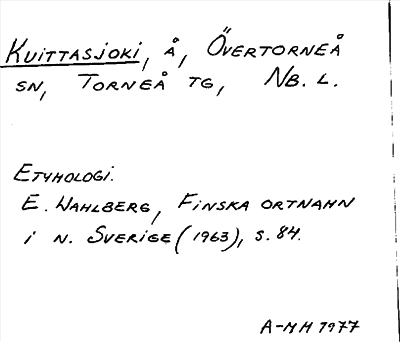 Kuittasjoki, å, Övertorneå
sn, Torneå tg, Nb. l.
Etymologi:
E. Wahlberg, Finska ortnamn
i n. Sverige (1963), s. 84.
A-M H 1977